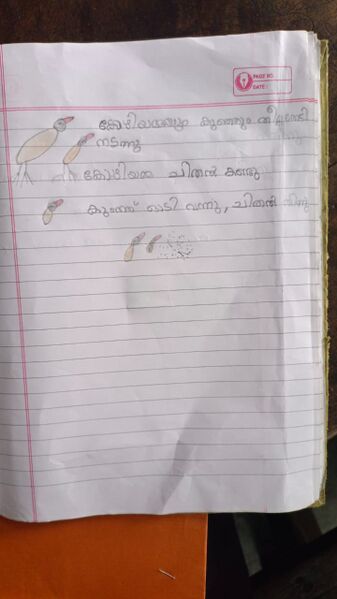 PAGE NO.
DATE:
കോഴിയമ്മയും കുഞ്ഞും തീറ്റതേടി
നടന്നു
കോഴിയമ്മ ചിതൽ കണ്ടു
കുഞ്ഞ് ഓടി വന്നു, ചിതൽ തിന്നു